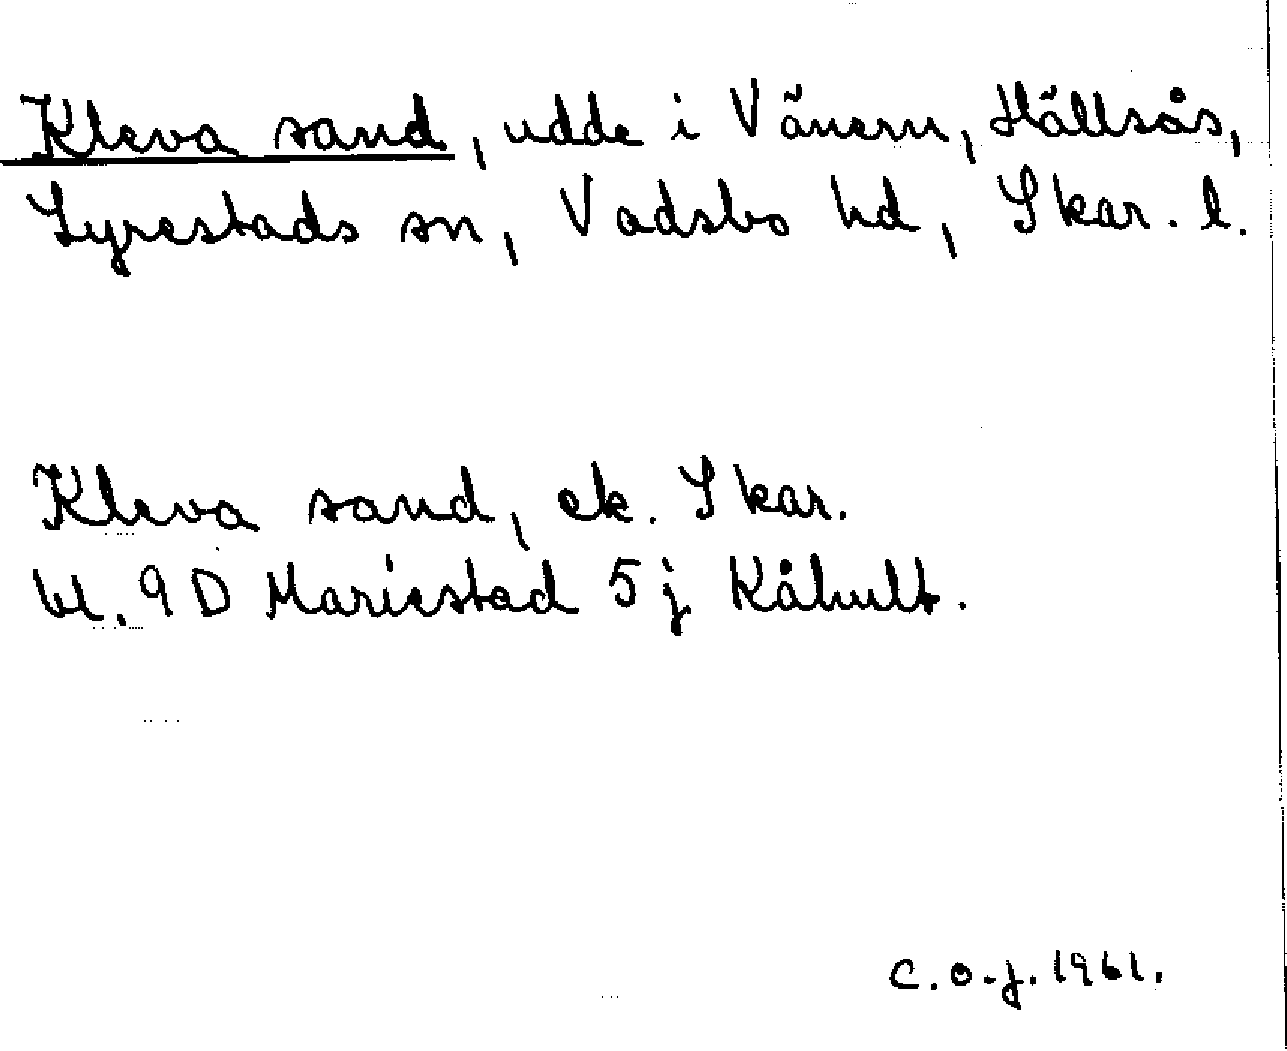 Kleva sand, udde i Vänern, Hällsås,
Lyrestads sn, Vadsbo hd, Skar. l.
Kleva sand, ek. Skar.
bl. 9 D Mariestad 5 j Kåhult.
C. O-j. 1961.